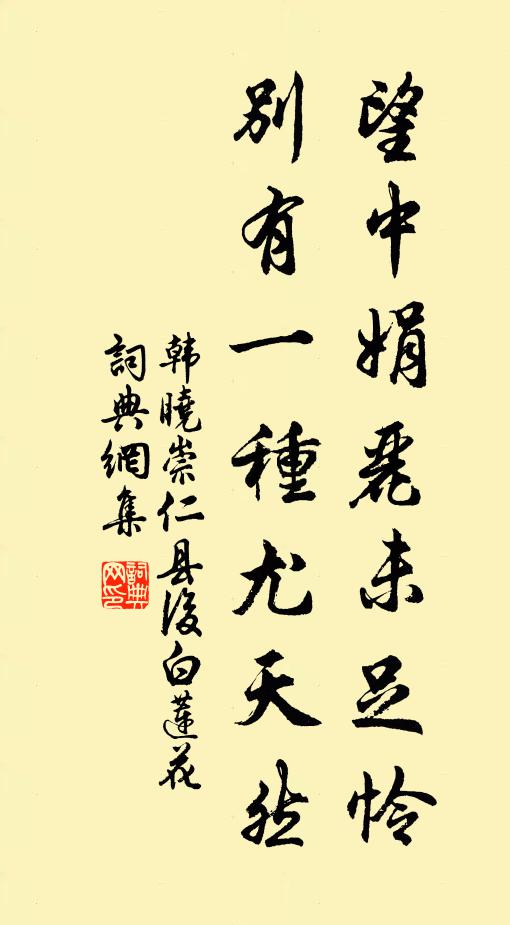 望中娟麗未足怜
別有一種尤天然
韩曉崇仁县後白蓮花
詞典網集
詞典网印